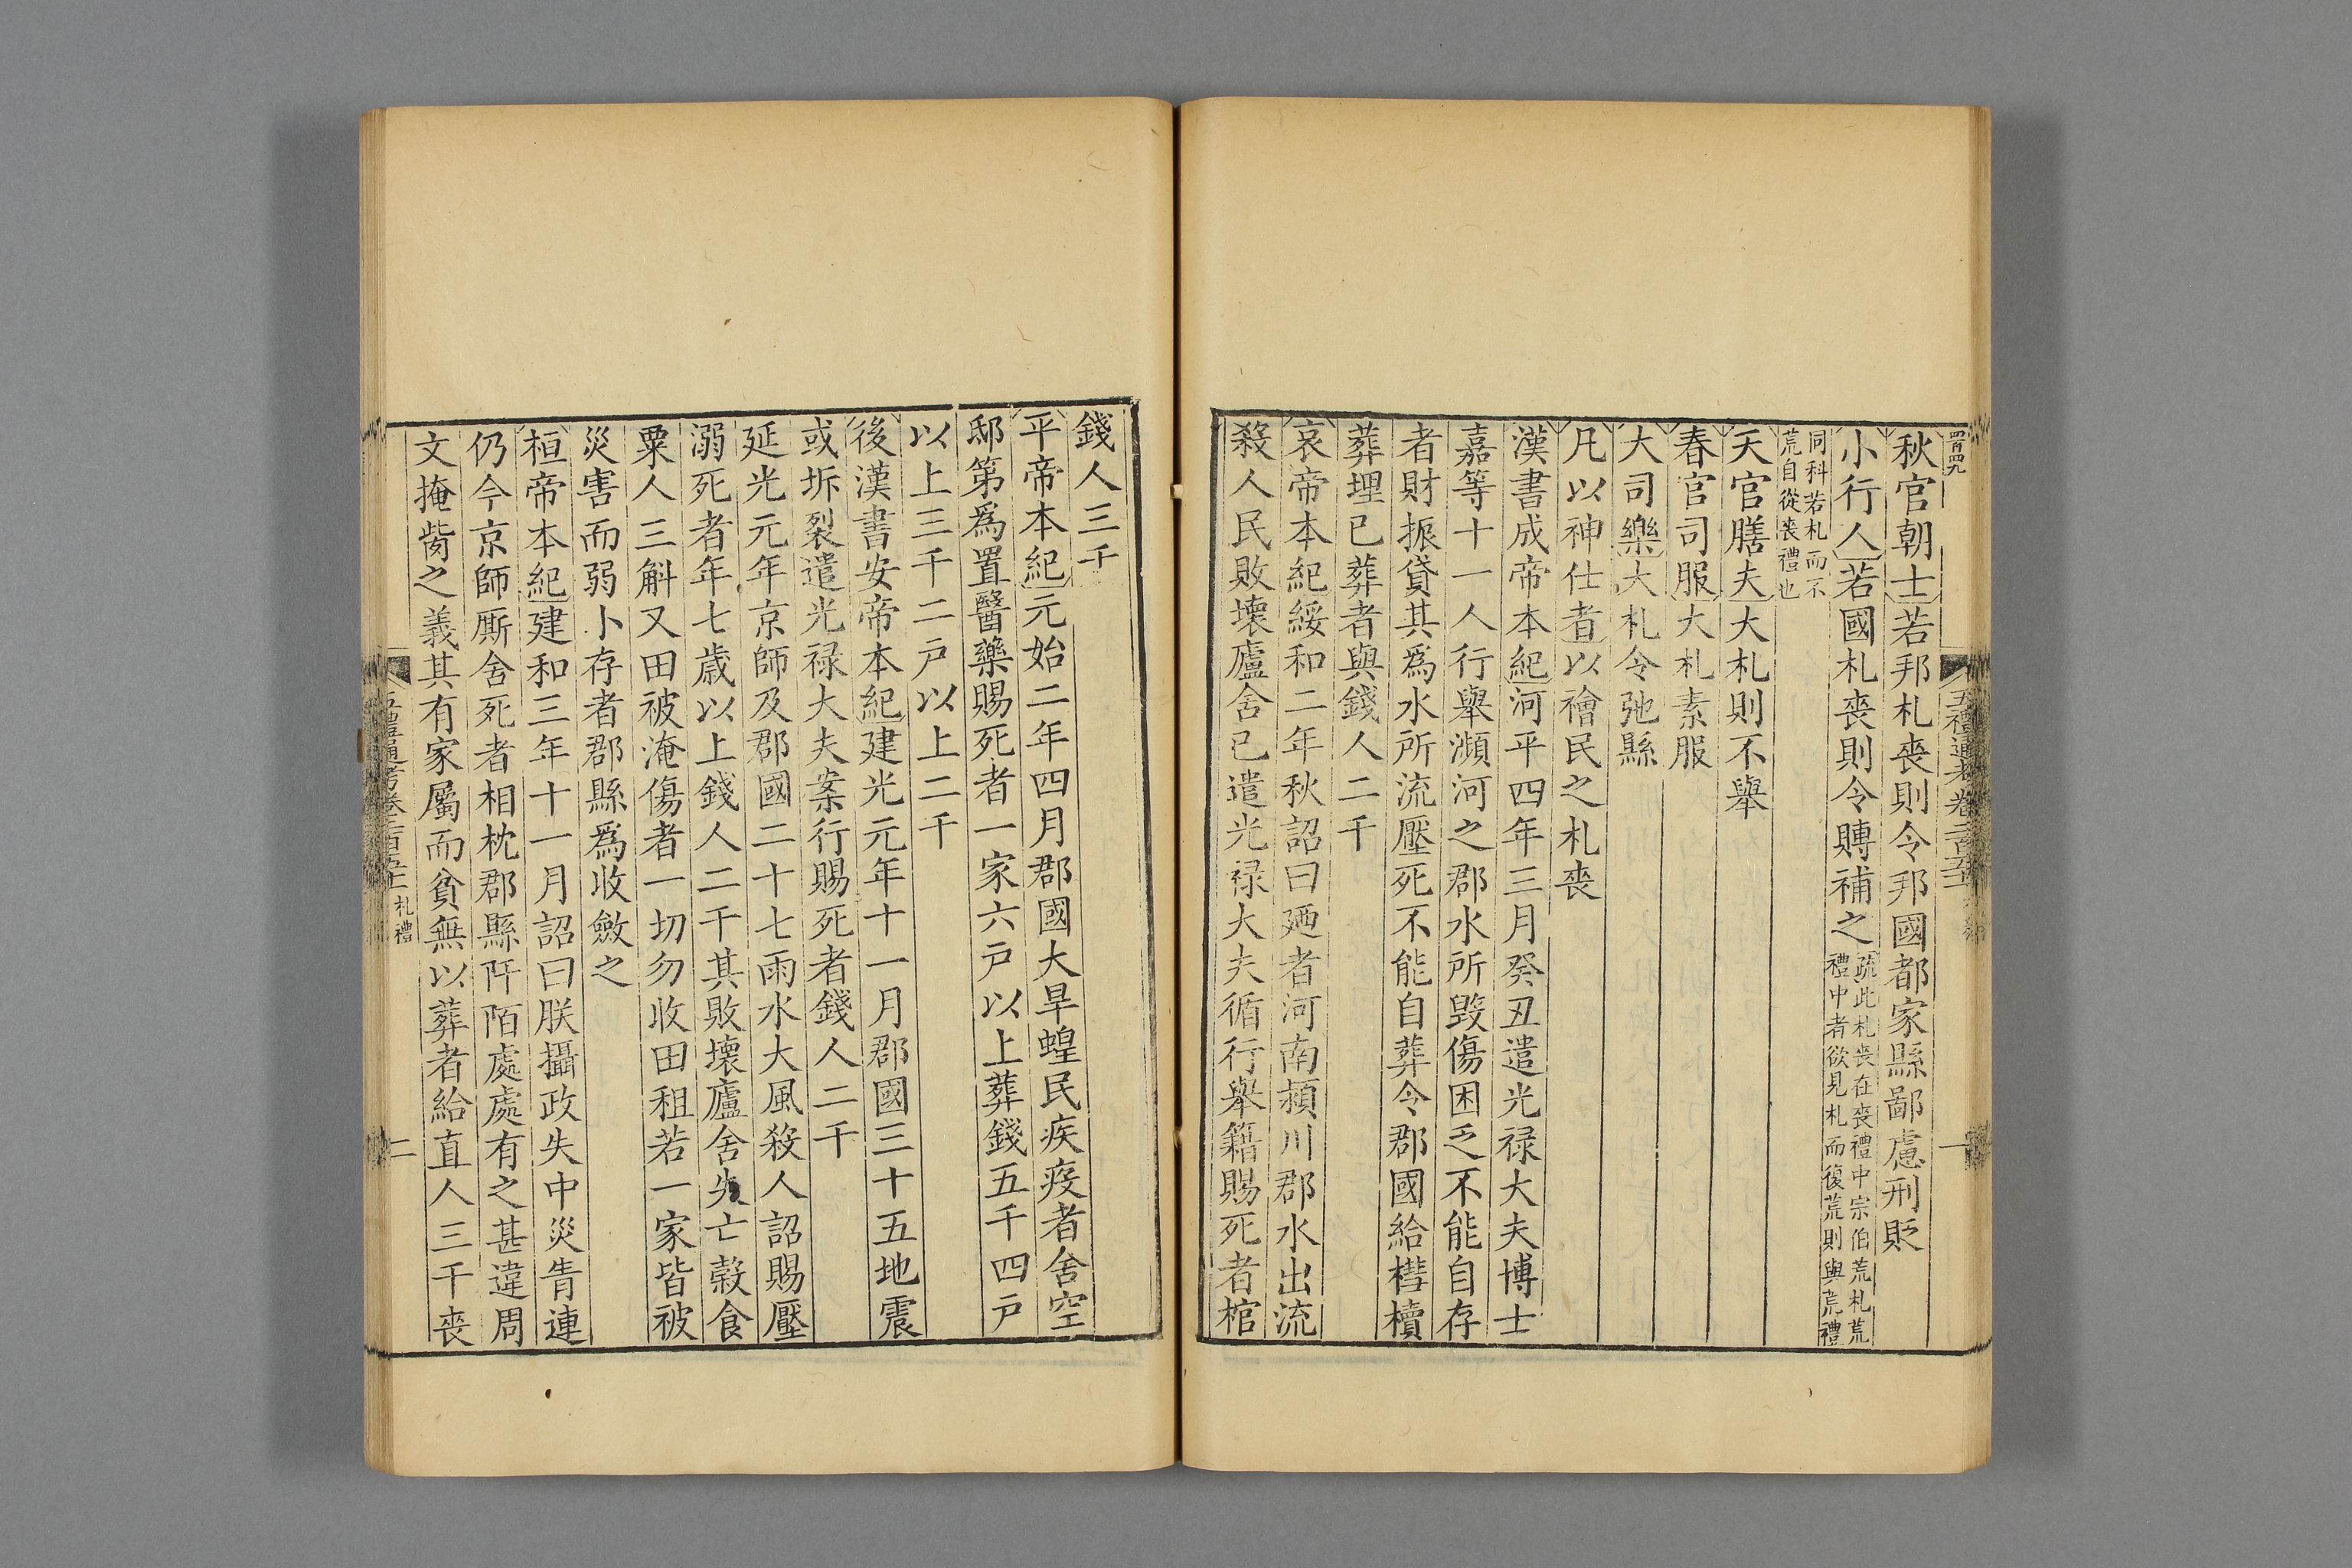 秋官朝士若邦札喪則令邦國都家縣鄙慮刑貶
小行人若國札喪則令賻補之疏此札喪在喪禮中宗伯荒札荒
禮中者欲見札而復荒則與荒禮
同科若札而不
荒自從喪禮也
天官膳夫大札則不舉
春官司服大札素服
大司樂大札令弛縣
凡以神仕者以禬民之札喪
漢書成帝本紀河平四年三月癸丑遣光禄大夫博士
嘉等十一人行舉瀕河之郡水所毁傷困乏不能自存
者財振貸其爲水所流壓死不能自葬令郡國給槥櫝
葬埋已葬者與錢人二千
哀帝本紀綏和二年秋詔曰廼者河南潁川郡水出流
殺人民敗壞廬舍已遣光禄大夫循行舉籍賜死者棺
錢人三千
平帝本紀元始二年四月郡國大旱蝗民疾疫者舍空
邸第爲置醫藥賜死者一家六戸以上葬錢五千四戸
以上三千二戸以上二千
後漢書安帝本紀建光元年十一月郡國三十五地震
或坼裂遣光禄大夫案行賜死者錢人二千
延光元年京師及郡國二十七雨水大風殺人詔賜壓
溺死者年七歲以上錢人二千其敗壞廬舍失亡穀食
粟人三斛又田被淹傷者一切勿收田租若一家皆被
災害而弱小存者郡縣爲收斂之
桓帝本紀建和三年十一月詔曰朕攝政失中災眚連
仍今京師厮舍死者相枕郡縣阡陌處處有之甚違周
文掩胔之義其有家屬而貧無以葬者給直人三千喪
五禮通考卷二百五十一 札禮
二